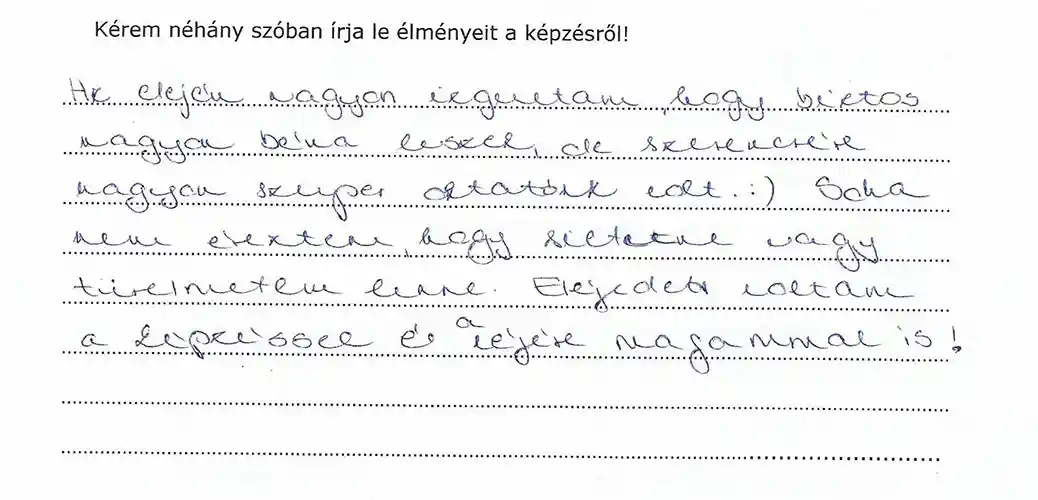 Kérem néhány szóban írja le élményeit a képzésről!
Az elején nagyon izgultam, hogy biztos
nagyon béna leszek, de szerencsére
nagyon szuper oktatónk volt. :) Soha
nem éreztem, hogy siettetne vagy
türelmetlen lenne. Elégedett voltam
a képzéssel és a végére magammal is!